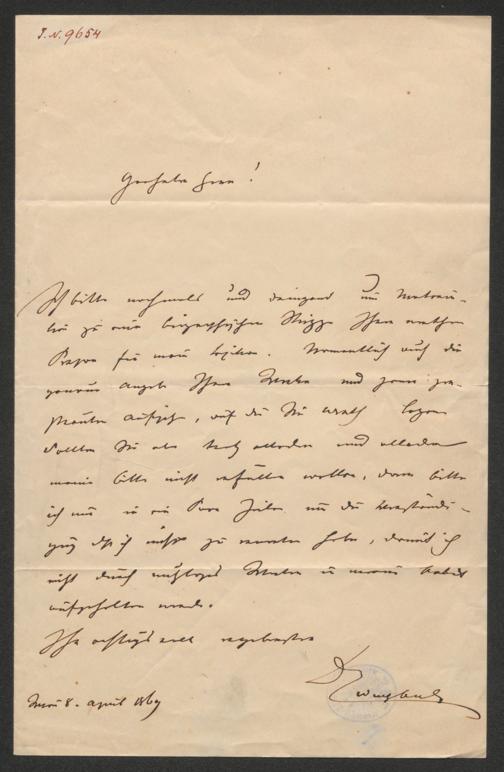 I.N. 9654
Geehrter Herr!
Ich bitte nochmals und dringend um Materia-
lien zu einer biographischen Skizze Ihrer werthen
Person für mein Lexikon. Namentlich auch die
genaue Angabe Ihrer Werke und jener zer-
streuten Aufsätze, auf die Sie Werth legen
Sollten Sie aber trotz alledem und alledem
meine Bitte nicht erfüllen wollen, dann bitte
ich nur in ein Paar Zeilen um die Verständi-
gung daß ich nichts zu erwarten habe, damit ich
nicht durch nutzloses Warten in meiner Arbeit
aufgehalten werde.
Ihr achtungsvoll ergebenster
Dr Wurzbach
Wien 8. April 1869